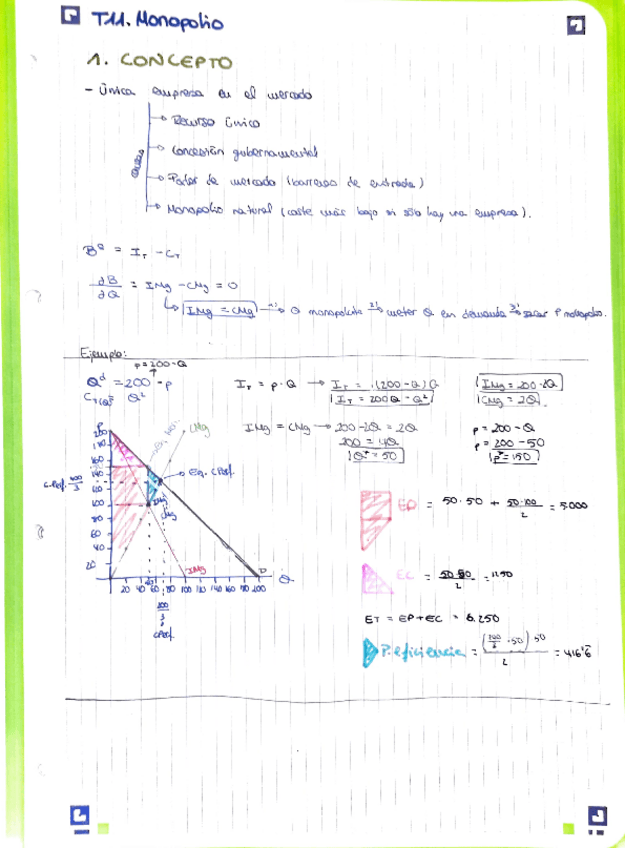 T11. Monopolio
1. CONCEPTO
- Única empresa en el mercado
causas
Recurso único
Concesión gubernamental
Poder de mercado (barreras de entrada)
Monopolio natural (coste más bajo si sólo hay una empresa).
Bº = I_T - C_T
∂B/∂Q = IMg - CMg = 0
IMg = CMg 1º→ Q monopolista 2º→ meter Q en demanda 3º→ sacar P monopolio.
Ejemplo:
p = 200 - Q
Q^d = 200 - p
C_T(Q) = Q²
I_T = p · Q → I_T = (200 - Q) Q
I_T = 200Q - Q²
IMg = 200 - 2Q
CMg = 2Q
IMg = CMg → 200 - 2Q = 2Q
200 = 4Q
Q* = 50
p = 200 - Q
p = 200 - 50
p* = 150
P
200
CMg
Eq. CPerf.
100
80
60
40
20
IMg
D
Q
20 40 60 80 100 120 140 160 180 200
200/3
CPerf.
EP = 50 · 50 + 50·100/2 = 5000
EC = 50·50/2 = 1250
ET = EP + EC = 6.250
P. eficiencia = = 416'6